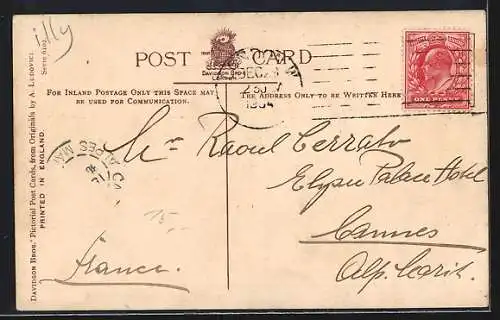 POST CARD
DAVIDSON BROS.
LONDON
DEC 23
1904
ONE PENNY
FOR INLAND POSTAGE ONLY THIS SPACE MAY
BE USED FOR COMMUNICATION.
THE ADDRESS ONLY TO BE WRITTEN HERE
Mr Raoul Cerrato
Elysee Palace Hotel
Cannes
Alp. Marit.
France.
15,-
DAVIDSON BROS.' Pictorial Post Cards, from Originals by A. LUDOVICI
PRINTED IN ENGLAND.